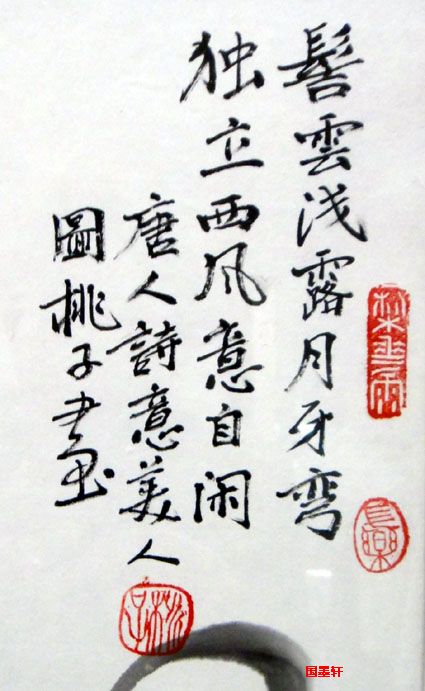 髻雲浅露月牙彎
独立西风意自闲
唐人詩意美人
圖桃子畫
国墨轩